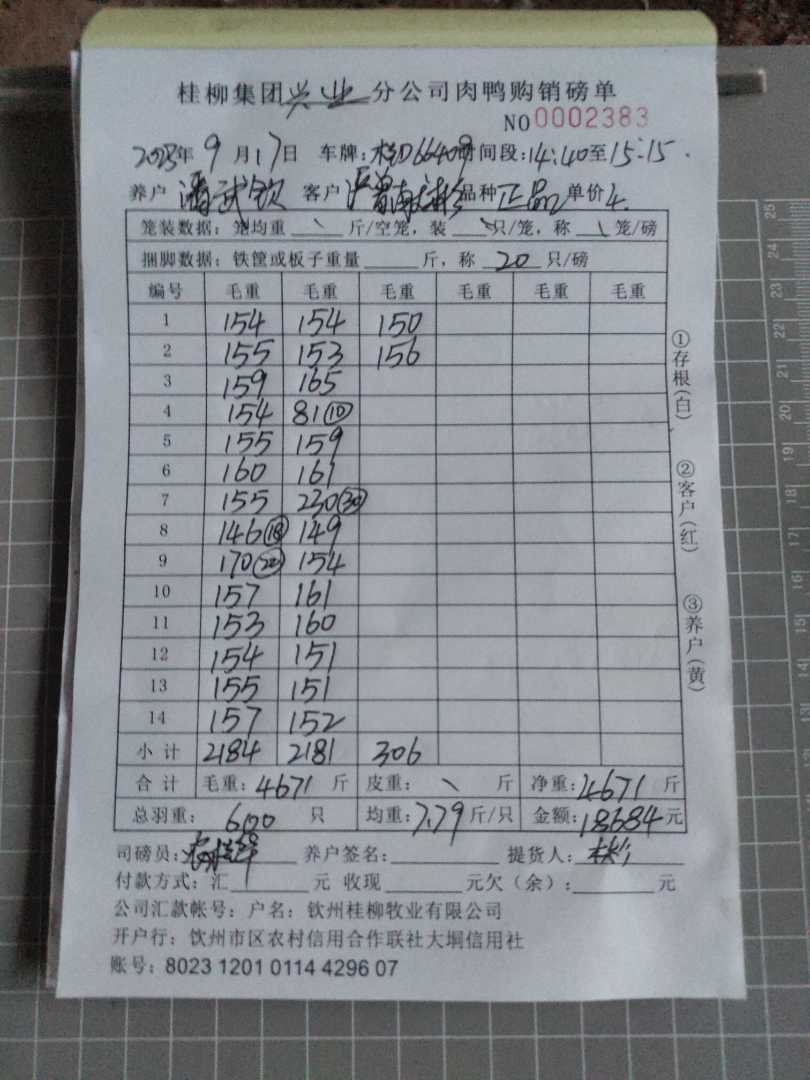 桂柳集团兴业分公司肉鸭购销磅单
NO 0002383
2023年 9月17日 车牌:桂D66409时间段:14:40至15:15.
养户 潘武钦 客户 品种 正品 单价 4.
笼装数据: 笼均重 \ 斤/空笼, 装 \ 只/笼, 称 \ 笼/磅
捆脚数据: 铁筐或板子重量 斤, 称 20 只/磅
编号 毛重 毛重 毛重 毛重 毛重 毛重
1 154 154 150
2 155 153 156
3 159 165
4 154 81⑩
5 155 159
6 160 161
7 155 230㉚
8 146⑱ 149
9 170㉒ 154
10 157 161
11 153 160
12 154 151
13 155 151
14 157 152
小计 2184 2181 306
合计 毛重: 4671 斤 皮重: \ 斤 净重: 4671 斤
总羽重: 600 只 均重: 7.79 斤/只 金额: 18684 元
司磅员: 养户签名: 提货人:
付款方式: 汇 元 收现 元欠(余): 元
公司汇款帐号: 户名: 钦州桂柳牧业有限公司
开户行: 钦州市区农村信用合作联社大垌信用社
账号: 8023 1201 0114 4296 07
①存根(白)
②客户(红)
③养户(黄)
25
24
23
22
21
20
19
18
17
16
15